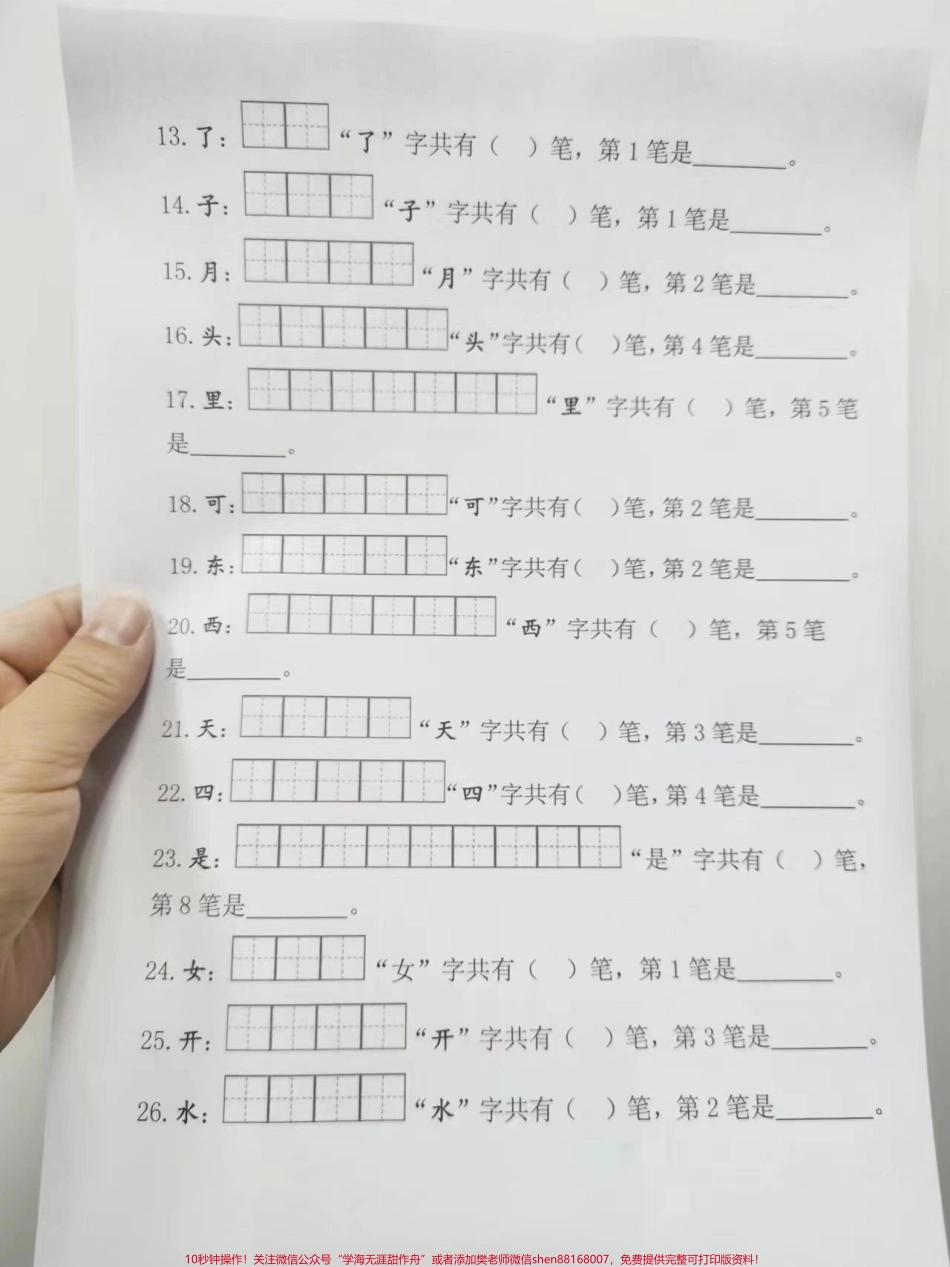 13. 了： “了” 字共有（ ）笔，第 1 笔是_______。
14. 子： “子” 字共有（ ）笔，第 1 笔是_______。
15. 月： “月” 字共有（ ）笔，第 2 笔是_______。
16. 头： “头”字共有( )笔，第 4 笔是_______。
17. 里： “里” 字共有（ ）笔，第 5 笔
是_______。
18. 可： “可”字共有( )笔，第 2 笔是_______。
19. 东： “东”字共有( )笔，第 2 笔是_______。
20. 西： “西” 字共有（ ）笔，第 5 笔
是_______。
21. 天： “天” 字共有（ ）笔，第 3 笔是_______。
22. 四： “四”字共有( )笔，第 4 笔是_______。
23. 是： “是” 字共有（ ）笔，
第 8 笔是_______。
24. 女： “女” 字共有（ ）笔，第 1 笔是_______。
25. 开： “开” 字共有（ ）笔，第 3 笔是_______。
26. 水： “水” 字共有（ ）笔，第 2 笔是_______。
10秒钟操作！关注微信公众号“学海无涯甜作舟”或者添加樊老师微信shen88168007，免费提供完整可打印版资料！